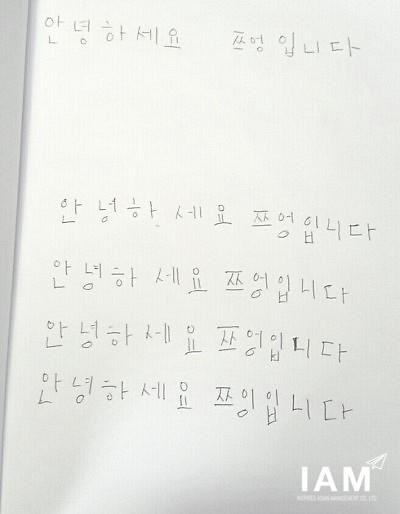 안녕하세요 쯔엉입니다
안녕하세요 쯔엉입니다
안녕하세요 쯔엉입니다
안녕하세요 쯔엉입니다
안녕하세요 쯔엉입니다
IAM
INSPIRED ASIAN MANAGEMENT CO., LTD